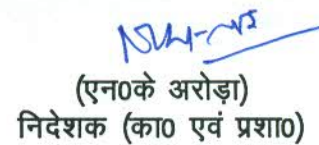 (एन0के अरोड़ा)
निदेशक (का0 एवं प्रशा0)